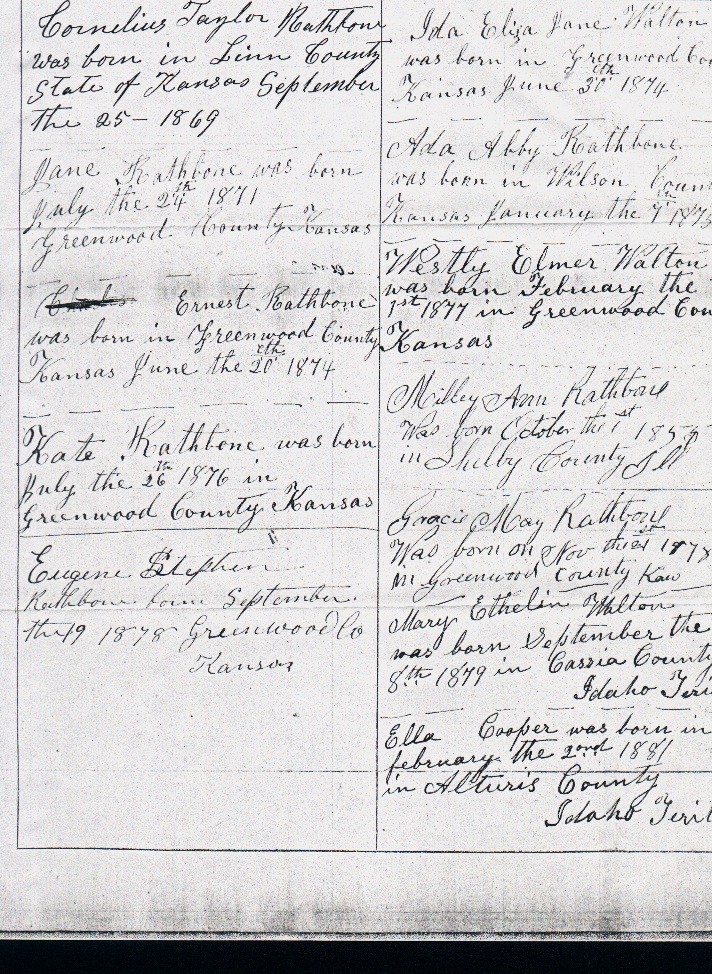 Cornelius Taylor Rathbone
was born in Linn County
State of Kansas September
the 25 - 1869
Jane Rathbone was born
July the 24th 1871
Greenwood County Kansas
Ernest Rathbone
was born in Greenwood County
Kansas June the 20eth 1874
Kate Rathbone was born
July the 26th 1876 in
Greenwood County Kansas
Eugene Stephen
Rathbone borne September
the 19 1878 Greenwood Co
Kansas
Ida Eliza Jane Walton
was born in Greenwood Cou
Kansas June 30eth 1874
Ada Abby Rathbone
was born in Wilson Coun
Kansas January the
Westly Elmer Walton
was born February the
1st 1877 in Greenwood Coun
Kansas
Milley Ann Rathbone
Was born October the 1st
in Shelby County Ill
Gracie May Rathbone
Was born on Nov the 1878
in Greenwood County Kan
Mary Ethelin Walton
was born September the
8th 1879 in Cassia County
Idaho Teri
Ella Cooper was born in
february the 2ond 1881
in Alturis County
Idaho Terit